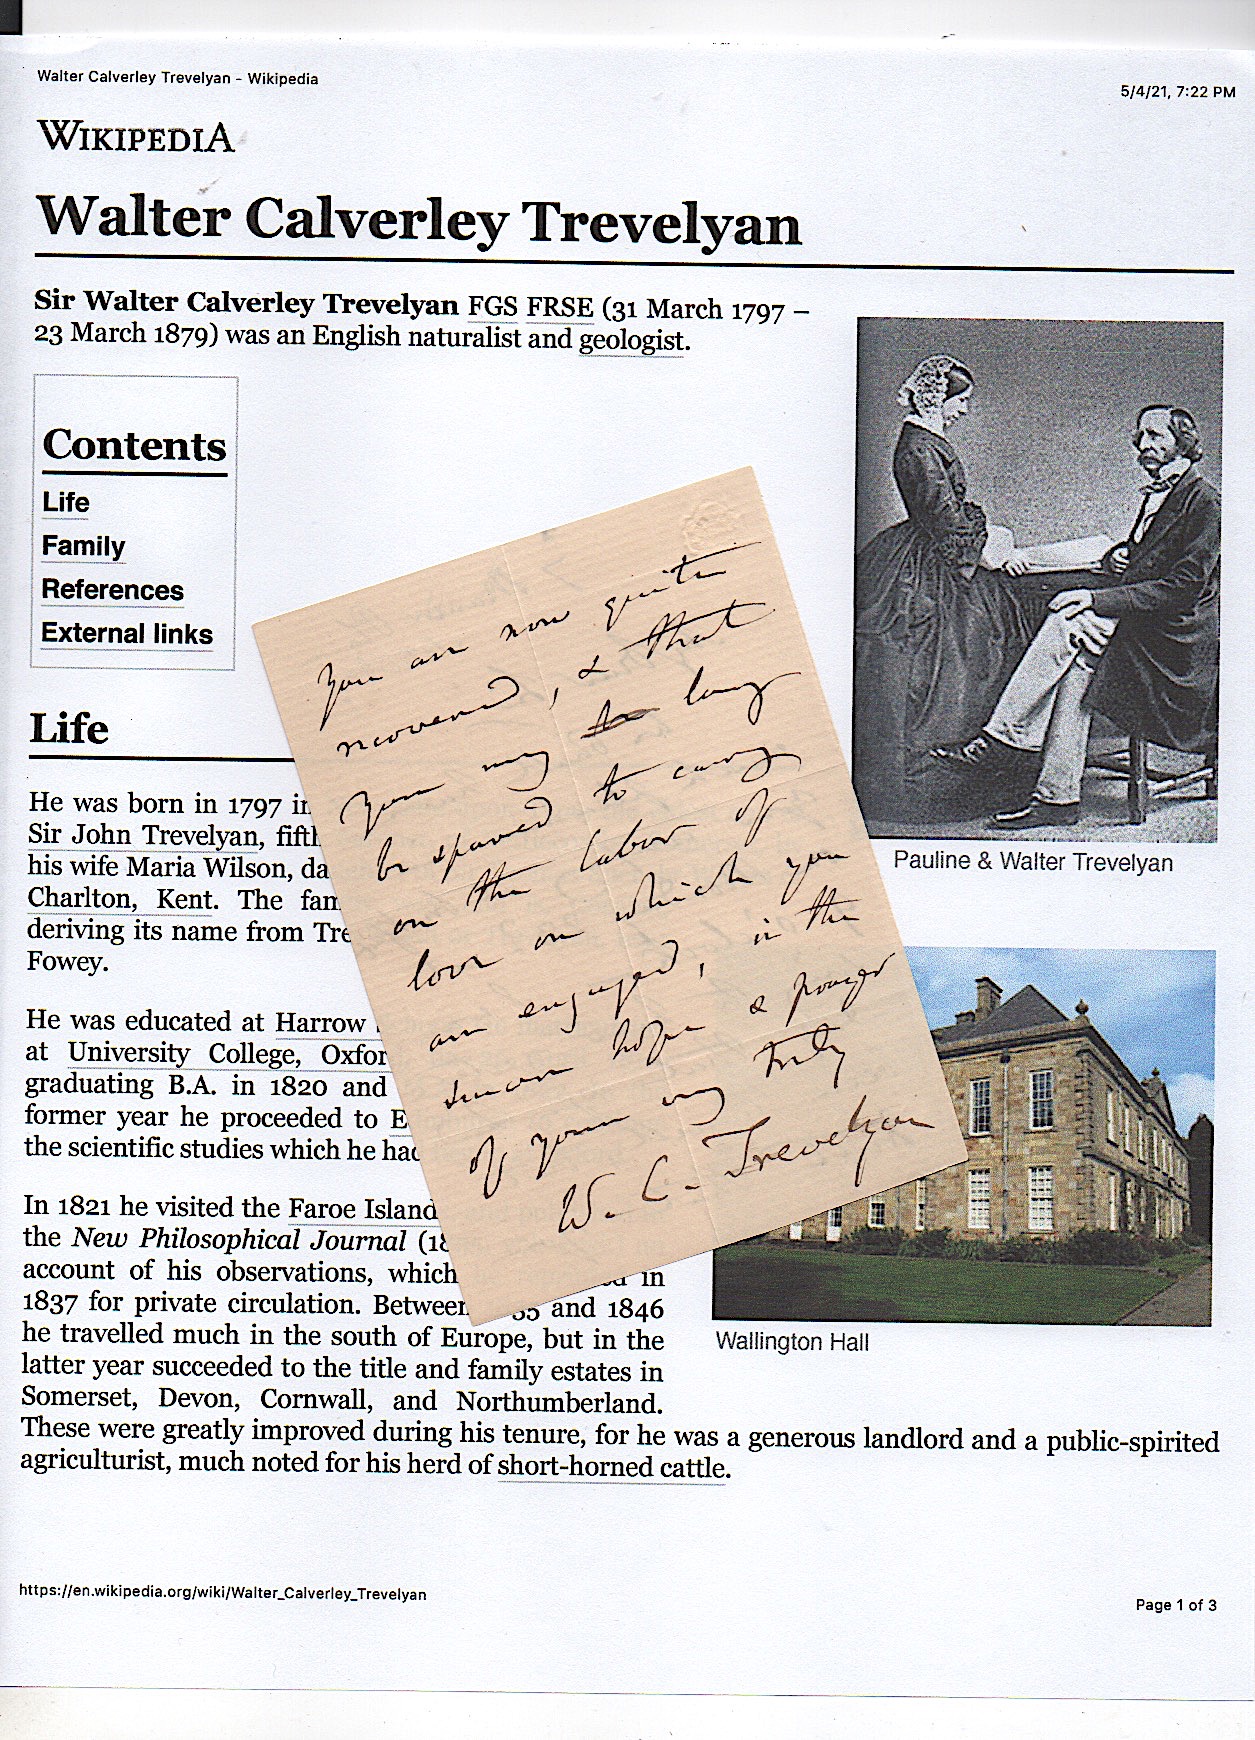 Walter Calverley Trevelyan - Wikipedia
5/4/21, 7:22 PM
WIKIPEDIA
Walter Calverley Trevelyan
Sir Walter Calverley Trevelyan FGS FRSE (31 March 1797 –
23 March 1879) was an English naturalist and geologist.
Contents
Life
Family
References
External links
Life
He was born in 1797 in
Sir John Trevelyan, fifth
his wife Maria Wilson, da
Charlton, Kent. The fam
deriving its name from Tre
Fowey.
He was educated at Harrow
at University College, Oxfor
graduating B.A. in 1820 and
former year he proceeded to E
the scientific studies which he had
In 1821 he visited the Faroe Island
the New Philosophical Journal (18
account of his observations, which in
1837 for private circulation. Between and 1846
he travelled much in the south of Europe, but in the
latter year succeeded to the title and family estates in
Somerset, Devon, Cornwall, and Northumberland.
These were greatly improved during his tenure, for he was a generous landlord and a public-spirited
agriculturist, much noted for his herd of short-horned cattle.
you are now quite
recovered, & that
you may long
be spared to carry
on the labor of
love on which you
are engaged, in the
sincere hope & prayer
of yours very truly
W. C. Trevelyan
Pauline & Walter Trevelyan
Wallington Hall
https://en.wikipedia.org/wiki/Walter_Calverley_Trevelyan
Page 1 of 3